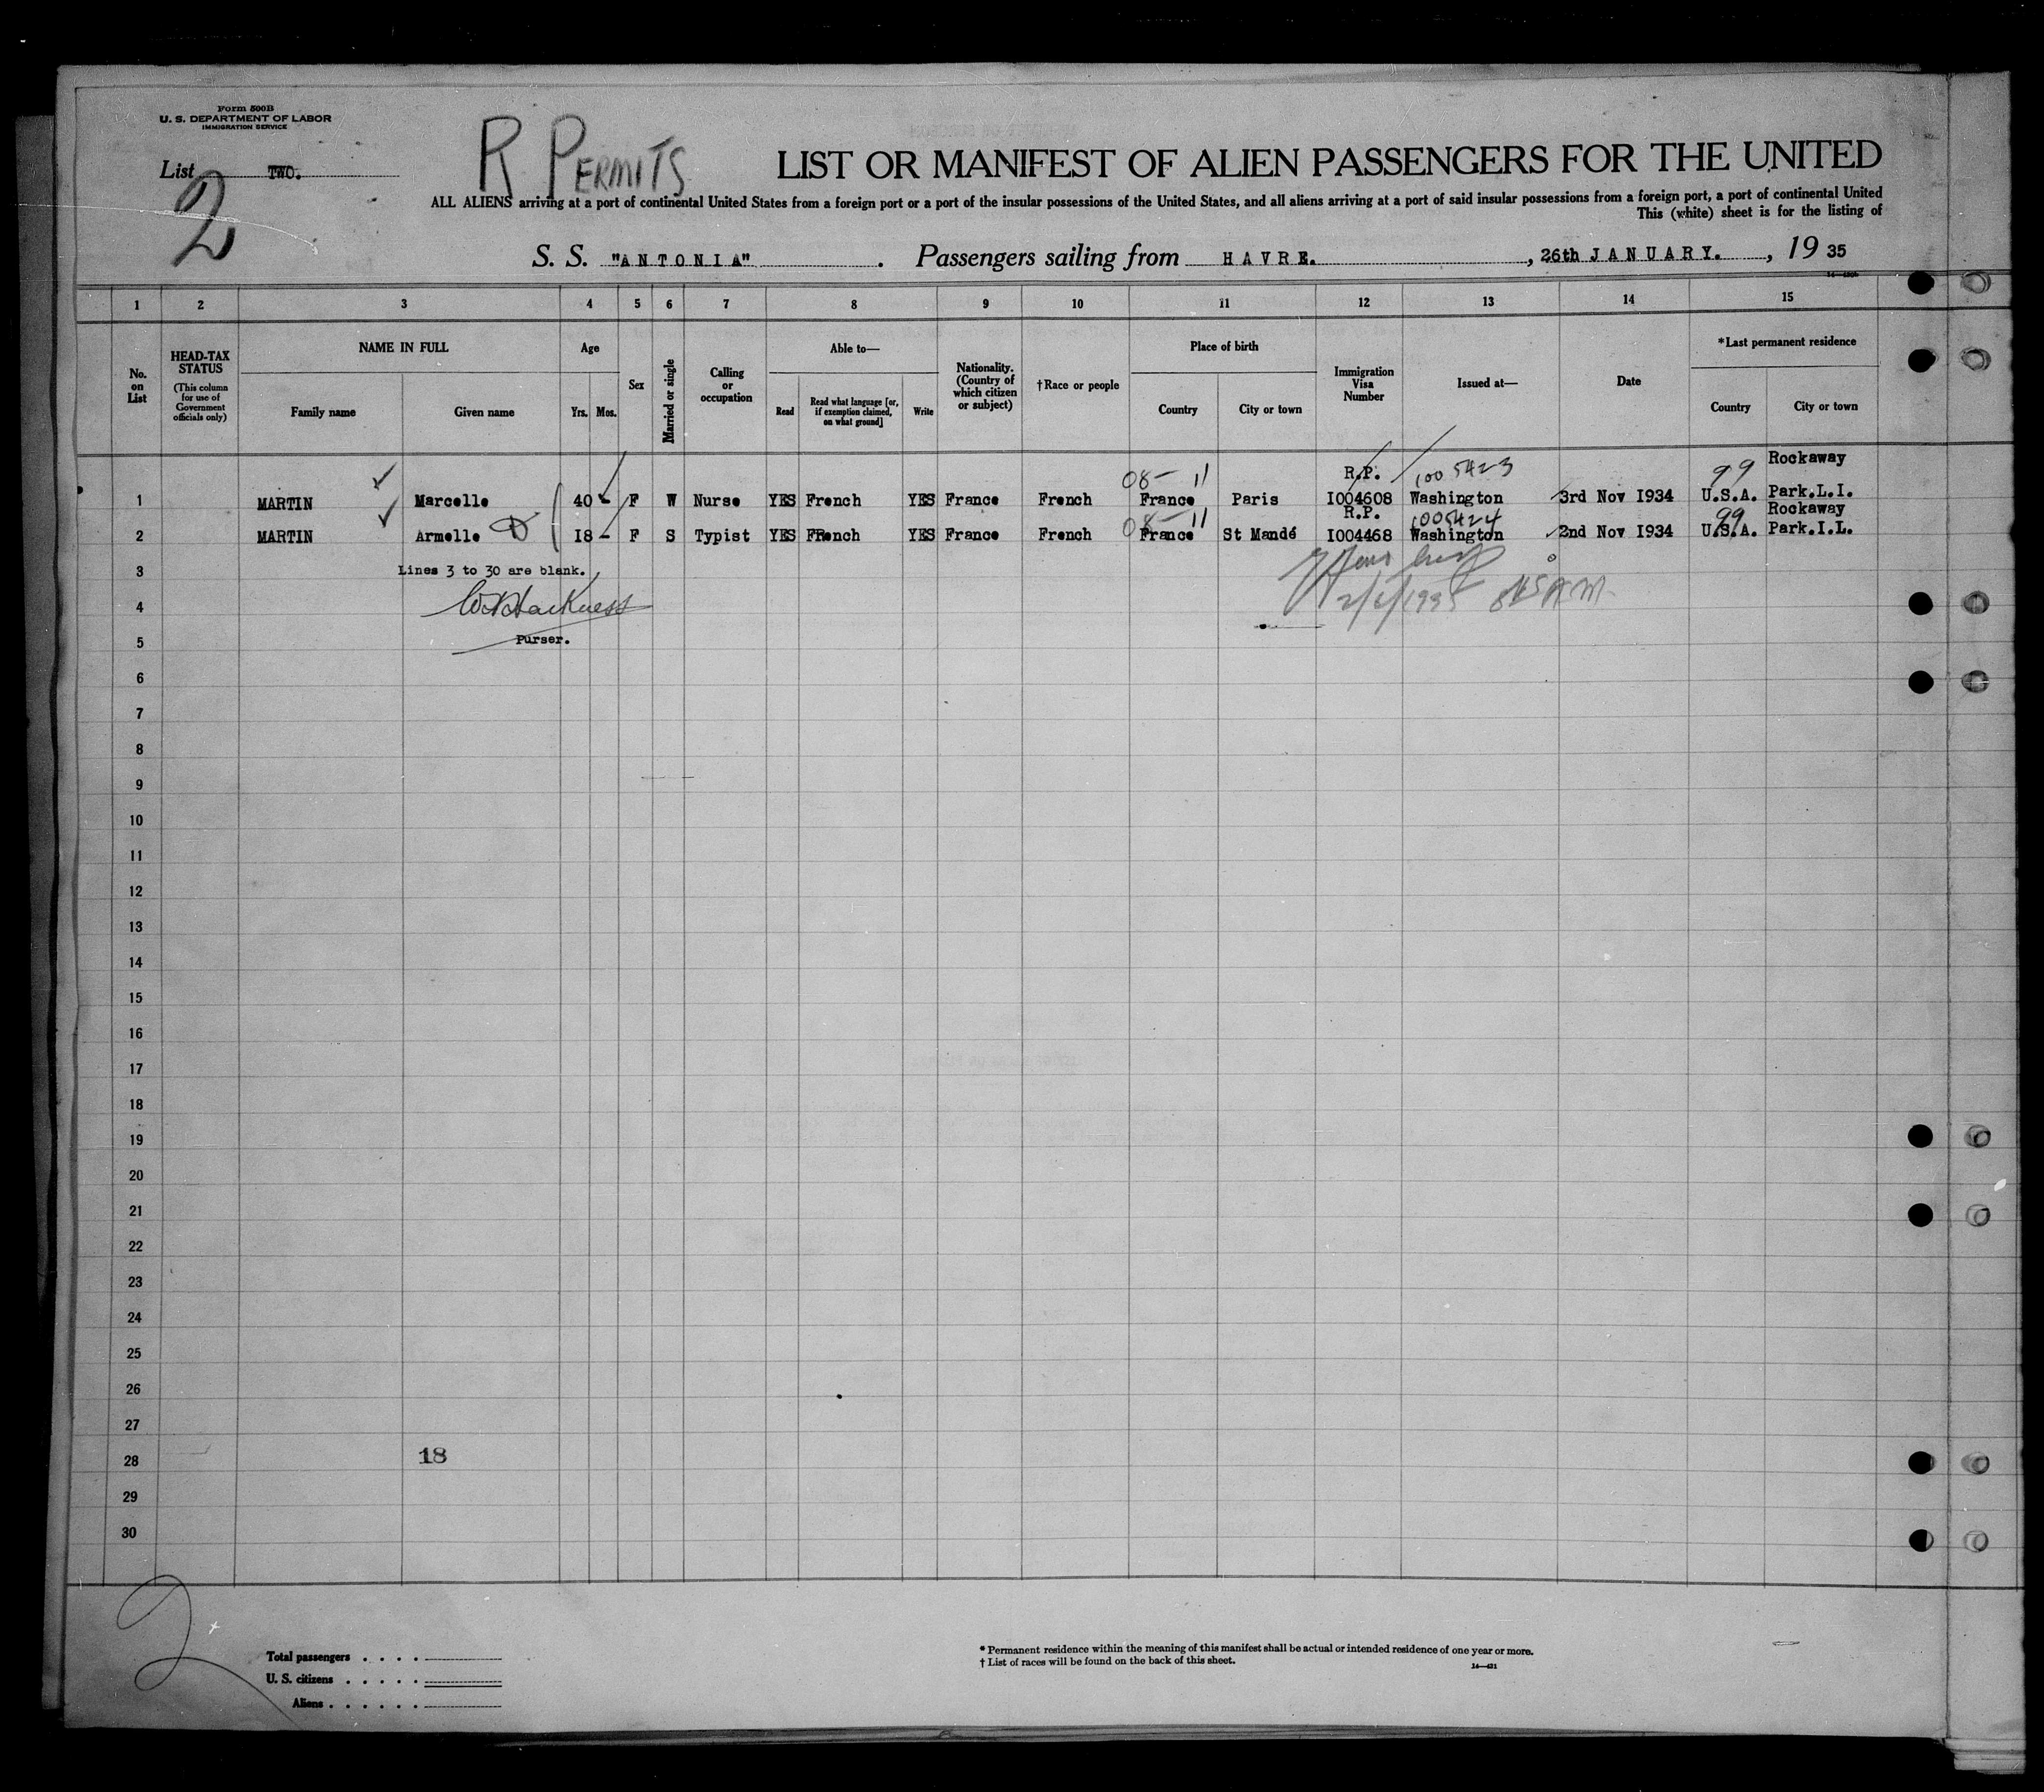 Form 500B
U. S. DEPARTMENT OF LABOR
IMMIGRATION SERVICE
List TWO.
2
R PERMITS
LIST OR MANIFEST OF ALIEN PASSENGERS FOR THE UNITED
ALL ALIENS arriving at a port of continental United States from a foreign port or a port of the insular possessions of the United States, and all aliens arriving at a port of said insular possessions from a foreign port, a port of continental United
This (white) sheet is for the listing of
S. S. "ANTONIA" . Passengers sailing from HAVRE. , 26th JANUARY. , 19 35
1 2 3 4 5 6 7 8 9 10 11 12 13 14 15
No. on List
HEAD-TAX STATUS (This column for use of Government officials only)
NAME IN FULL
Family name Given name
Age
Yrs. Mos.
Sex
Married or single
Calling or occupation
Able to—
Read Read what language [or, if exemption claimed, on what ground] Write
Nationality. (Country of which citizen or subject)
†Race or people
Place of birth
Country City or town
Immigration Visa Number
Issued at—
Date
*Last permanent residence
Country City or town
08- 11 R.P. 1005423 99 Rockaway
1 MARTIN Marcelle 40 - F W Nurse YES French YES France French France Paris I004608 Washington 3rd Nov I934 U.S.A. Park.L.I.
08- 11 R.P. 1005424 99 Rockaway
2 MARTIN Armelle I8 - F S Typist YES FRench YES France French France St Mandé I004468 Washington 2nd Nov I934 U.S.A. Park.I.L.
3 Lines 3 to 30 are blank.
4 2/6/1935 845 AM.
5 Purser.
6
7
8
9
10
11
12
13
14
15
16
17
18
19
20
21
22
23
24
25
26
27
28 18
29
30
2
Total passengers . . . .
U. S. citizens . . . . .
Aliens . . . . . .
* Permanent residence within the meaning of this manifest shall be actual or intended residence of one year or more.
† List of races will be found on the back of this sheet.
14—421